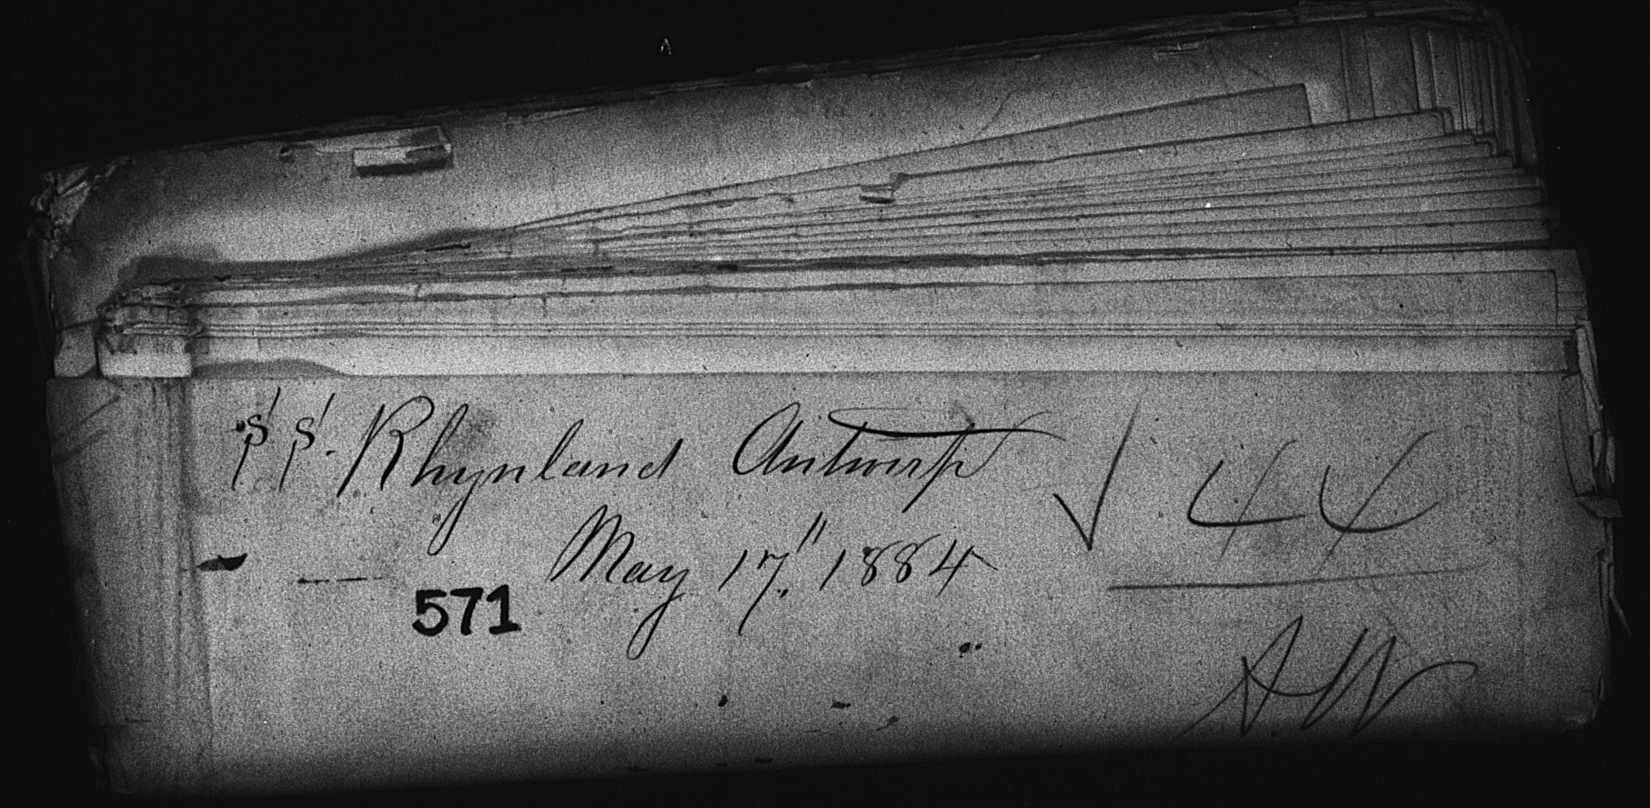 SS. Rhynland Antwerp √ 44
May 17." 1884
571
A.W.